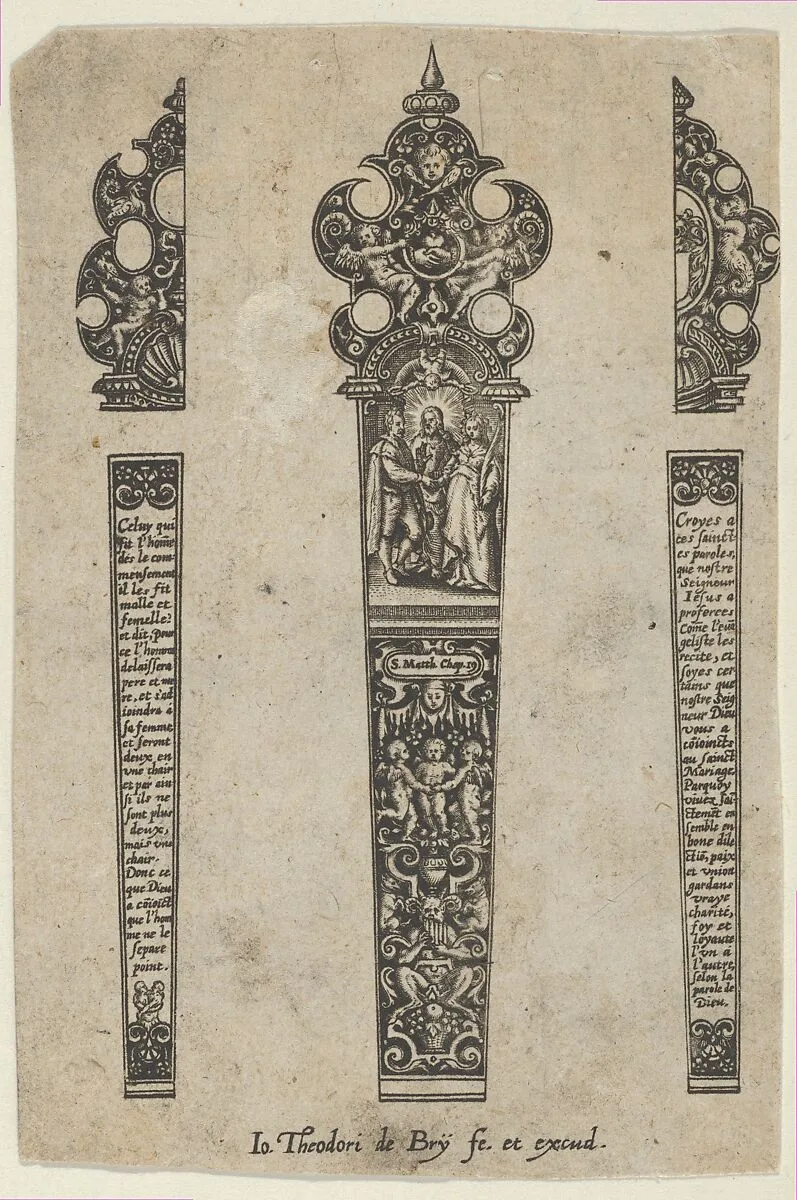 Celuy qui
fit l'hom̄e
dés le com-
mensement
il les fit
malle et
femelle?
et dit, pour
ce l'homme
delaissera
pere et me
re, et s'ad
ioindra á
sa femme
et seront
deux en
vne chair
et par ain
si ils ne
sont plus
deux,
mais vne
chair.
Donc ce
que Dieu
a cōioict
que l'hom
me ne le
separe
point.
S. Matth. Chap. 19
Croyes a
ces sainct
es paroles,
que nostre
Seigneur
Iesus a
proferees
Com̄e l'euā
geliste les
recite, et
soyes cer
tains que
nostre Seig
neur Dieu
vous a
cōioincts
au sainct
Mariage.
Parquoy
viuez sai
ctemēt en
semble en
bone dile
ctiō, paix
et vnion
gardans
vraye
charité,
foy et
loyaute
l'vn á
l'autre,
selon la
parole de
Dieu.
Io. Theodori de Brÿ fe. et excud.